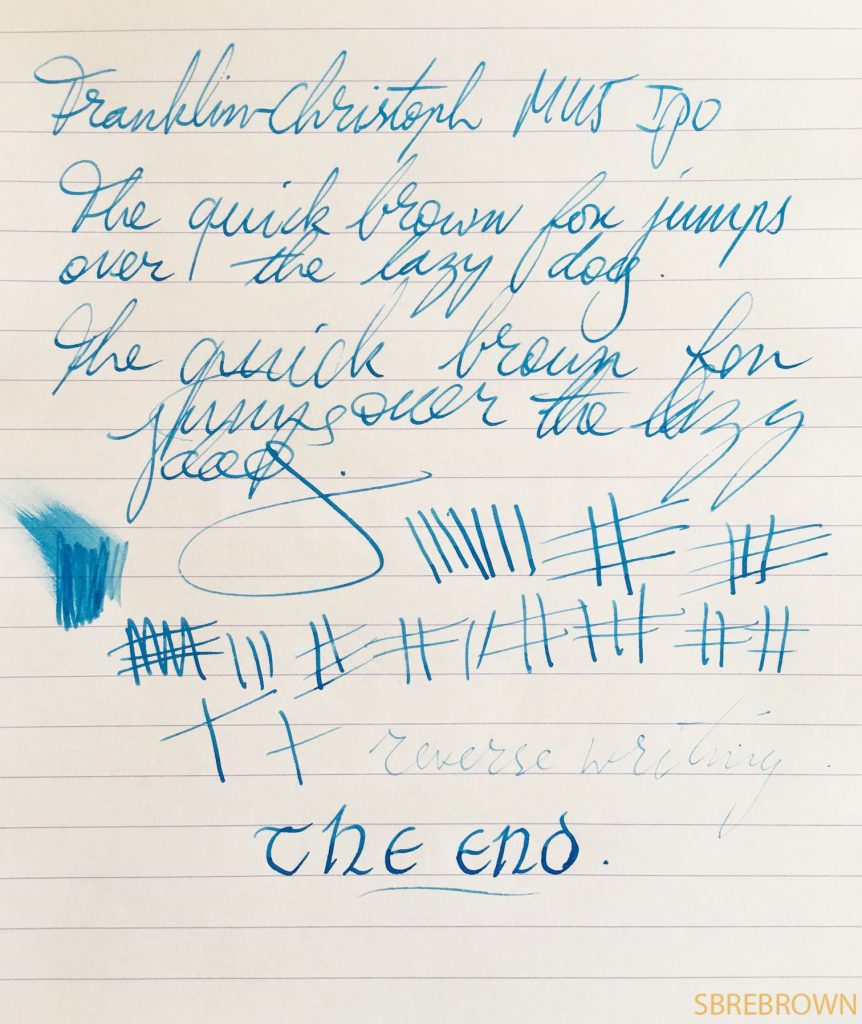 Franklin-Christoph MUJ IPO
The quick brown fox jumps
over the lazy dog.
The quick brown fox
jumps over the lazy
dog.
reverse writing.
The End.
SBREBROWN